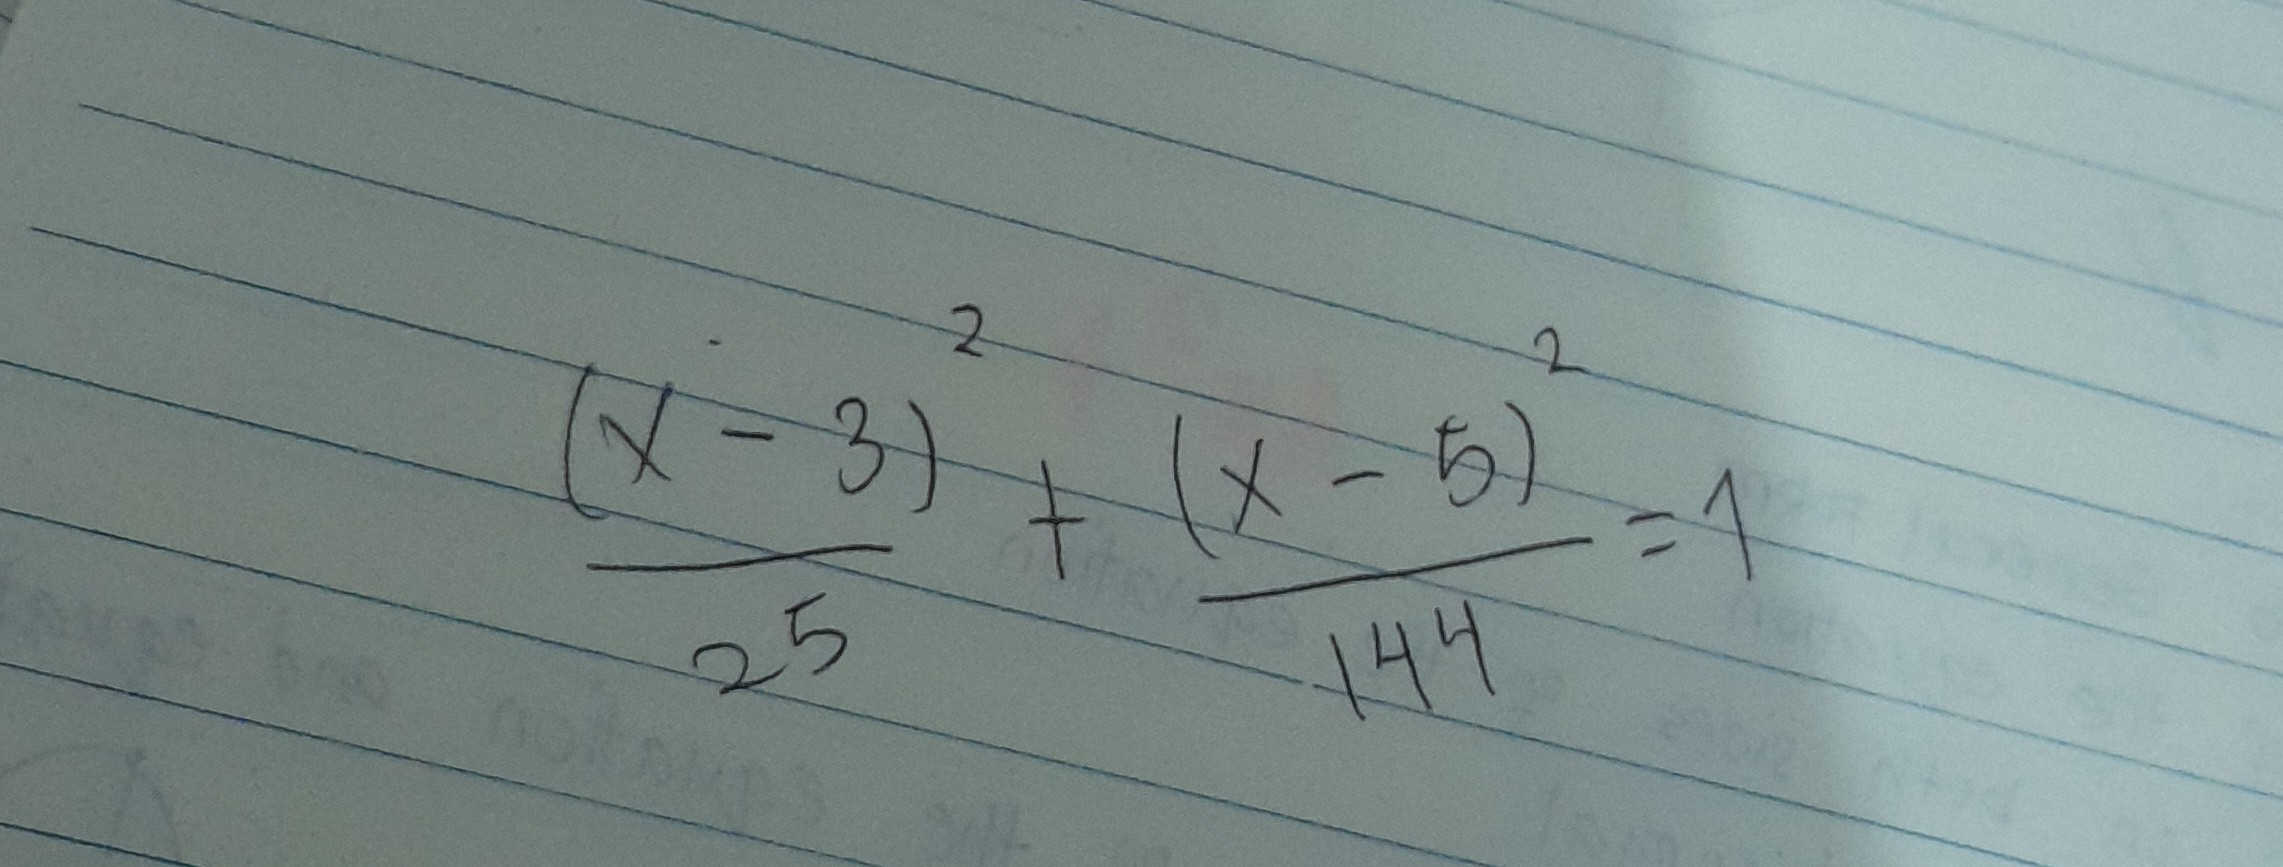 (x - 3)² / 25 + (x - 5)² / 144 = 1